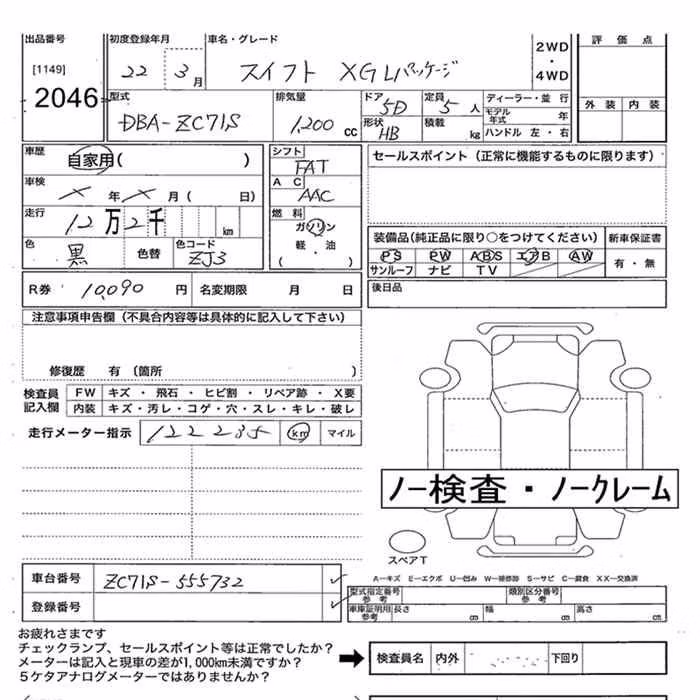 出品番号 初度登録年月 車名・グレード 評価点
[1149] 22 3月 スイフト XGLパッケージ 2WD・4WD
2046
型式 排気量 ドア 5D 定員 5人 ディーラー・並行 外装 内装
DBA-ZC71S 1,200cc 形状 HB 積載 kg モデル年式 年
ハンドル 左・右
車歴 自家用( ) シフト FAT セールスポイント(正常に機能するものに限ります)
車検 × 年 × 月( 日) AC AAC
走行 12万2千 km 燃料 ガソリン 軽・油 ( )
色 黒 色替 色コード ZJ3 装備品(純正品に限り○をつけてください) 新車保証書
PS PW ABS エアB AW 有・無
サンルーフ ナビ TV
R券 10,090円 名変期限 月 日 後日品
注意事項申告欄(不具合内容等は具体的に記入して下さい)
修復歴 有(箇所 )
検査員記入欄 FW キズ・飛石・ヒビ割・リペア跡・X要
内装 キズ・汚レ・コゲ・穴・スレ・キレ・破レ
走行メーター指示 122235 km マイル
ノー検査・ノークレーム
スペアT
A-キズ E-エクボ U-凹み W-補修跡 S-サビ C-腐食 XX-交換済
車台番号 ZC71S-555732
型式指定番号 参考 類別区分番号 参考
登録番号 車庫証明用 参考 長さ cm 幅 cm 高さ cm
お疲れさまです
チェックランプ、セールスポイント等は正常でしたか?
メーターは記入と現車の差が1,000km未満ですか?
5ケタアナログメーターではありませんか?
検査員名 内外 下回り